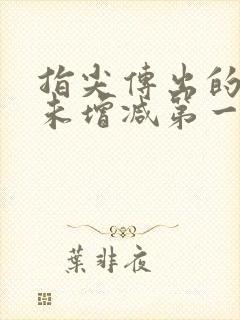 指尖傳出的
未增减第一
葉非夜